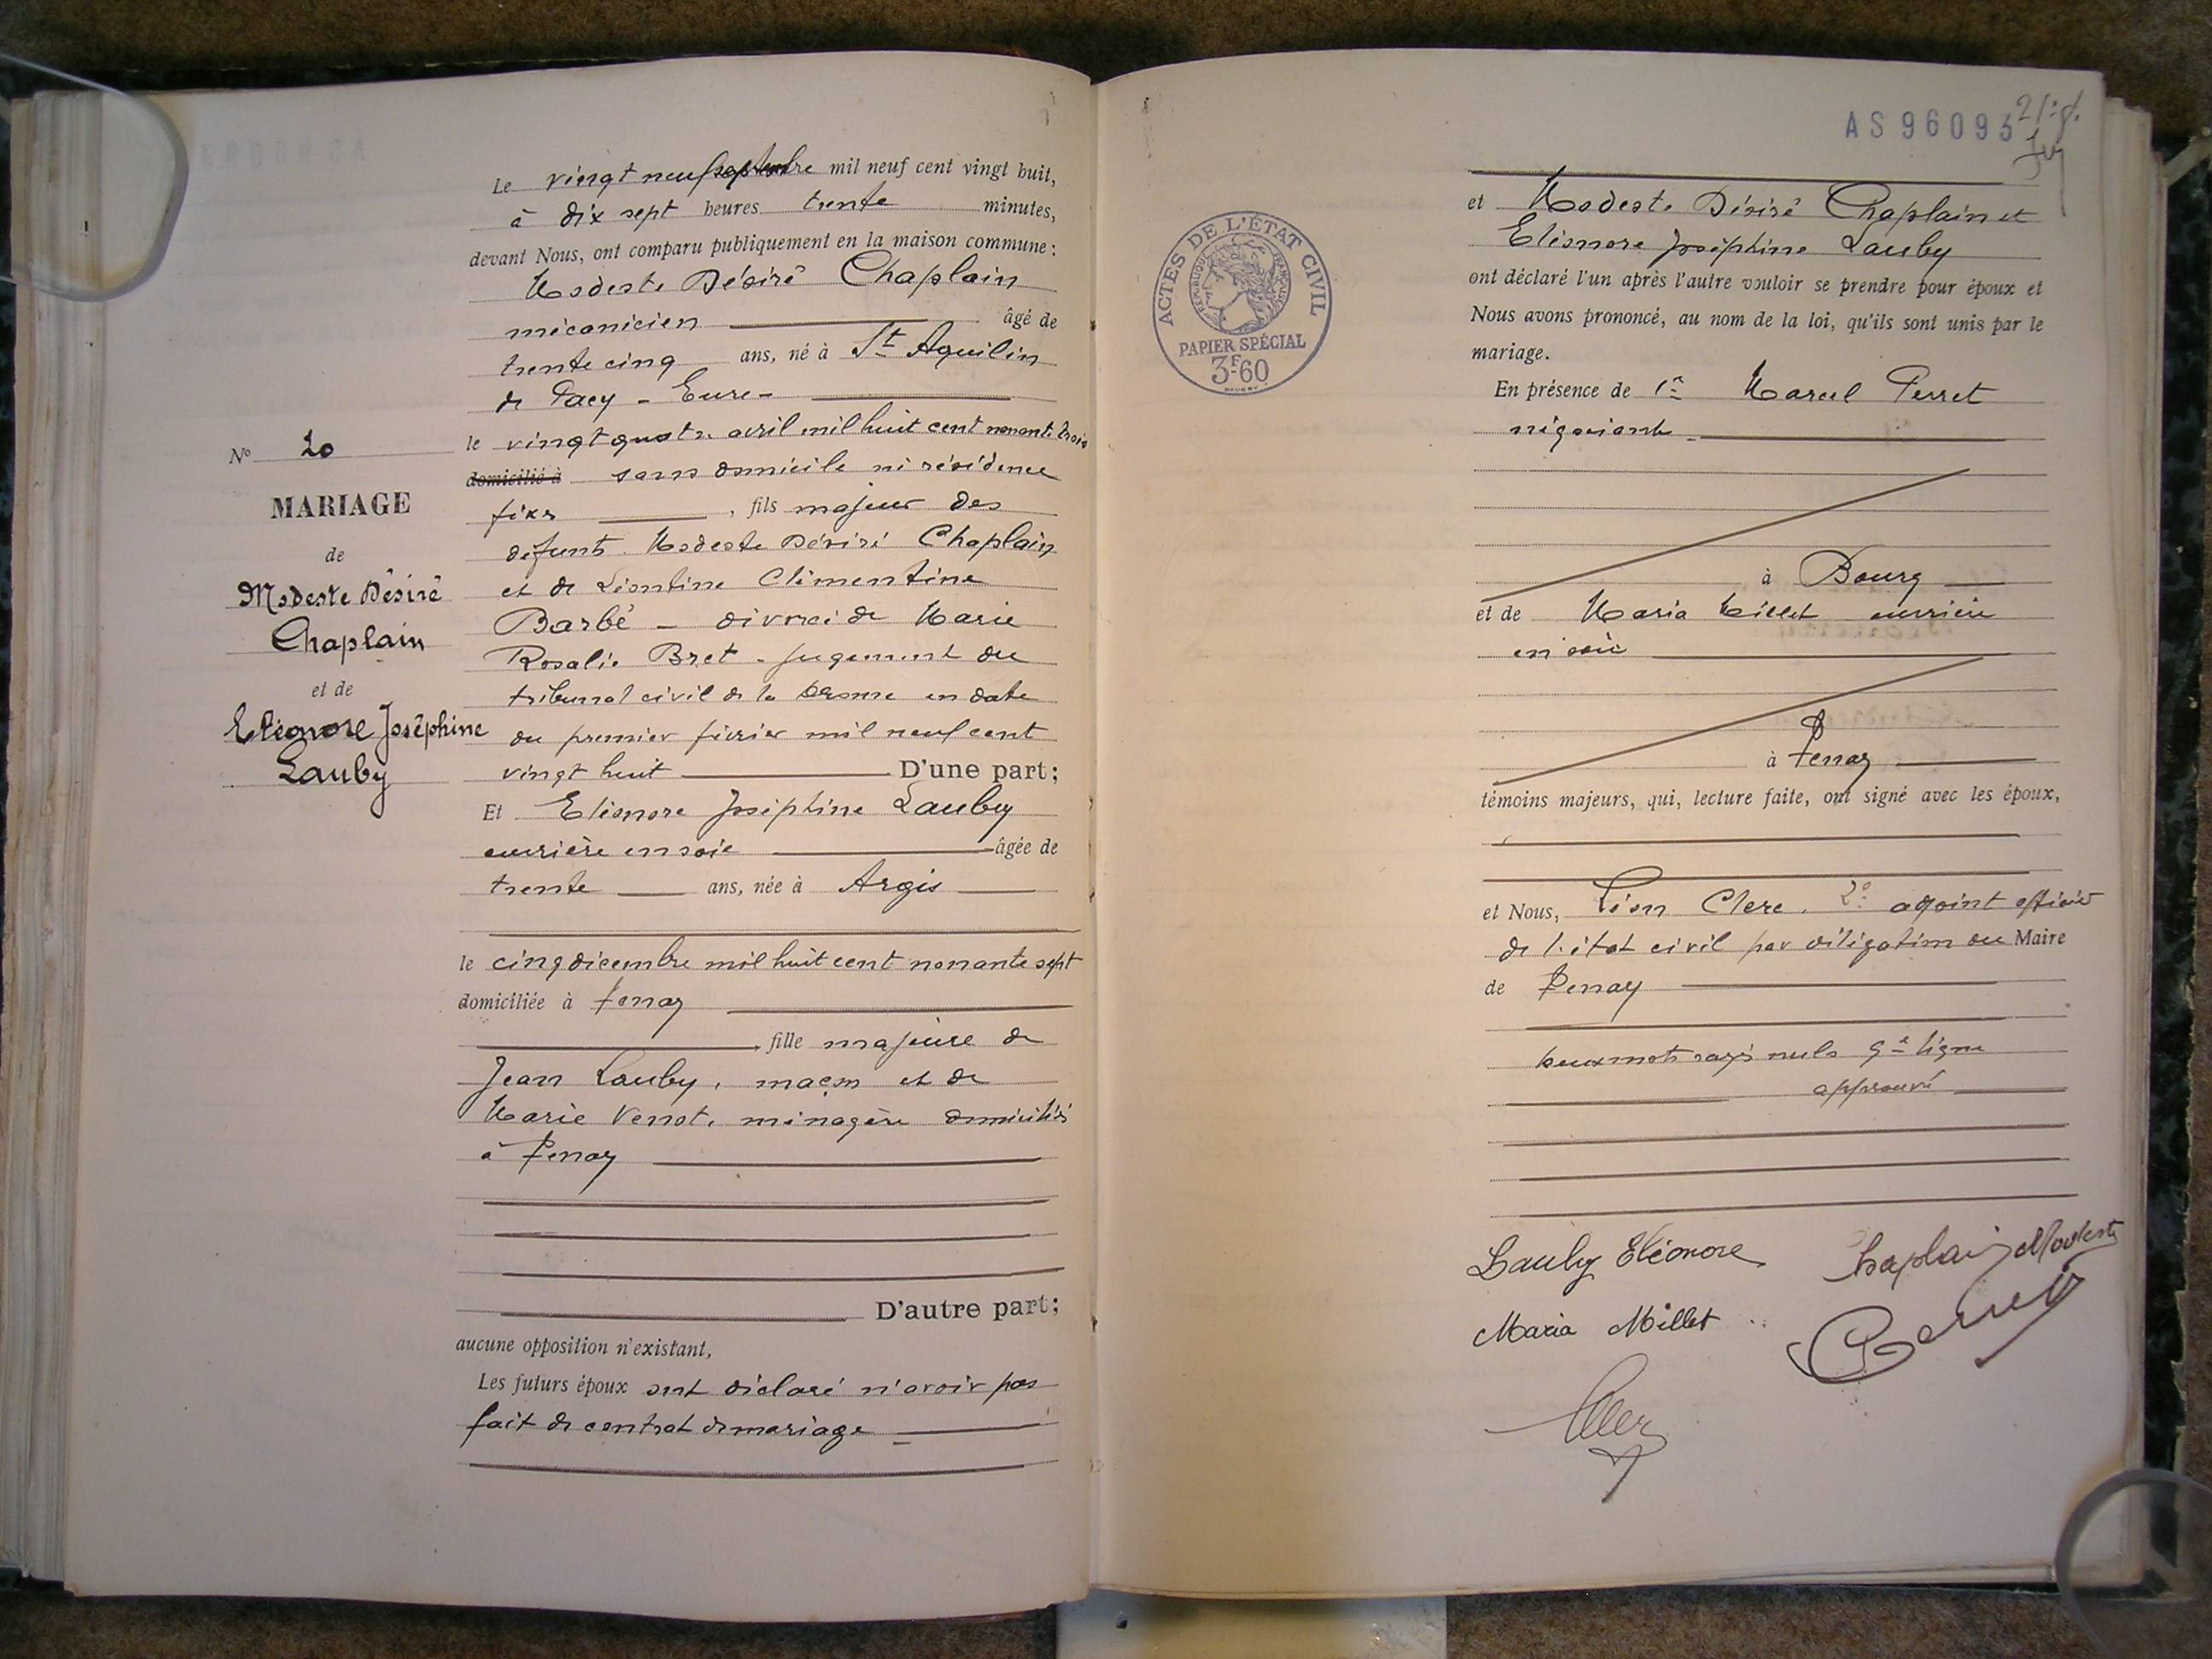 Le vingt neuf septembre mil neuf cent vingt huit,
à dix sept heures trente minutes,
devant Nous, ont comparu publiquement en la maison commune :
Modeste Désiré Chaplain
mécanicien âgé de
trente cinq ans, né à St Aquilin
de Pacy - Eure -
le vingt quatre avril mil huit cent nonante trois
domicilié à sans domicile ni résidence
fixe , fils majeur des
défunts Modeste Désiré Chaplain
et de Léontine Clémentine
Barbé - divorcé de Marie
Rosalie Bret - jugement du
tribunal civil de la en date
du premier février mil neuf cent
vingt huit D'une part;
Et Eléonore Joséphine Lauby
ouvrière en soie âgée de
trente ans, née à Argis
le cinq décembre mil huit cent nonante sept
domiciliée à Tenay
, fille majeure de
Jean Lauby, maçon et de
Marie Venot, ménagère domiciliés
à Tenay
D'autre part;
aucune opposition n'existant,
Les futurs époux ont déclaré n'avoir pas
fait de contrat de mariage
No 20
MARIAGE
de
Modeste Désiré
Chaplain
et de
Eléonore Joséphine
Lauby
ACTES DE L'ÉTAT CIVIL
RÉPUBLIQUE FRANÇAISE
PAPIER SPÉCIAL
3F60
AS 96093
et Modeste Désiré Chaplain et
Eléonore Joséphine Lauby
ont déclaré l'un après l'autre vouloir se prendre pour époux et
Nous avons prononcé, au nom de la loi, qu'ils sont unis par le
mariage.
En présence de 1° Marcel Perret
négociant
à Bourg
et de Maria Millet ouvrière
en soie
à Tenay
témoins majeurs, qui, lecture faite, ont signé avec les époux,
et Nous, Léon Clerc, 2e adjoint officier
de l'état civil par délégation du Maire
de Tenay
Deux mots rayés nuls 9e ligne
approuvé
Lauby Eléonore Chaplain Modeste
Maria Millet Perret